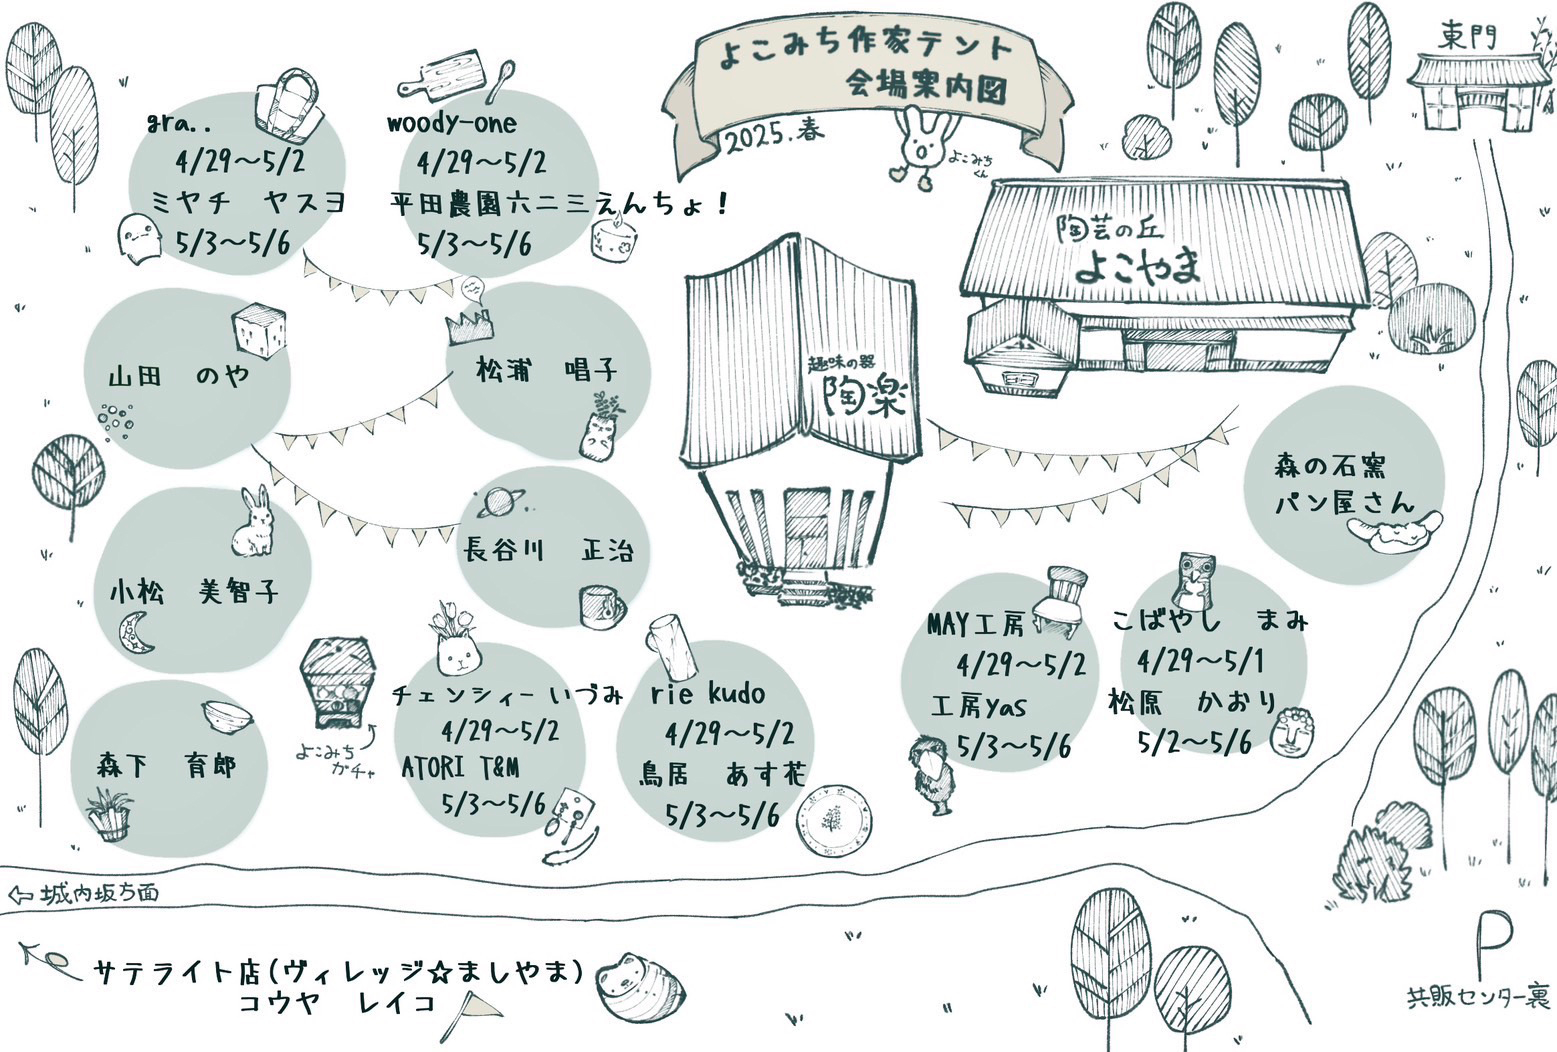 よこみち作家テント
会場案内図
2025.春
よこみち
くん
東門
陶芸の丘
よこやま
趣味の器
陶楽
gra..
4/29〜5/2
ミヤチ ヤスヨ
5/3〜5/6
woody-one
4/29〜5/2
平田農園六二三えんちょ!
5/3〜5/6
山田 のや
松浦 唱子
小松 美智子
長谷川 正治
森下 育郎
よこみち
ガチャ
チェンシィーいづみ
4/29〜5/2
ATORI T&M
5/3〜5/6
rie kudo
4/29〜5/2
鳥居 あす花
5/3〜5/6
MAY工房
4/29〜5/2
工房yas
5/3〜5/6
こばやし まみ
4/29〜5/1
松原 かおり
5/2〜5/6
森の石窯
パン屋さん
⇦城内坂方面
サテライト店(ヴィレッジ☆ましやま)
コウヤ レイコ
P
共販センター裏